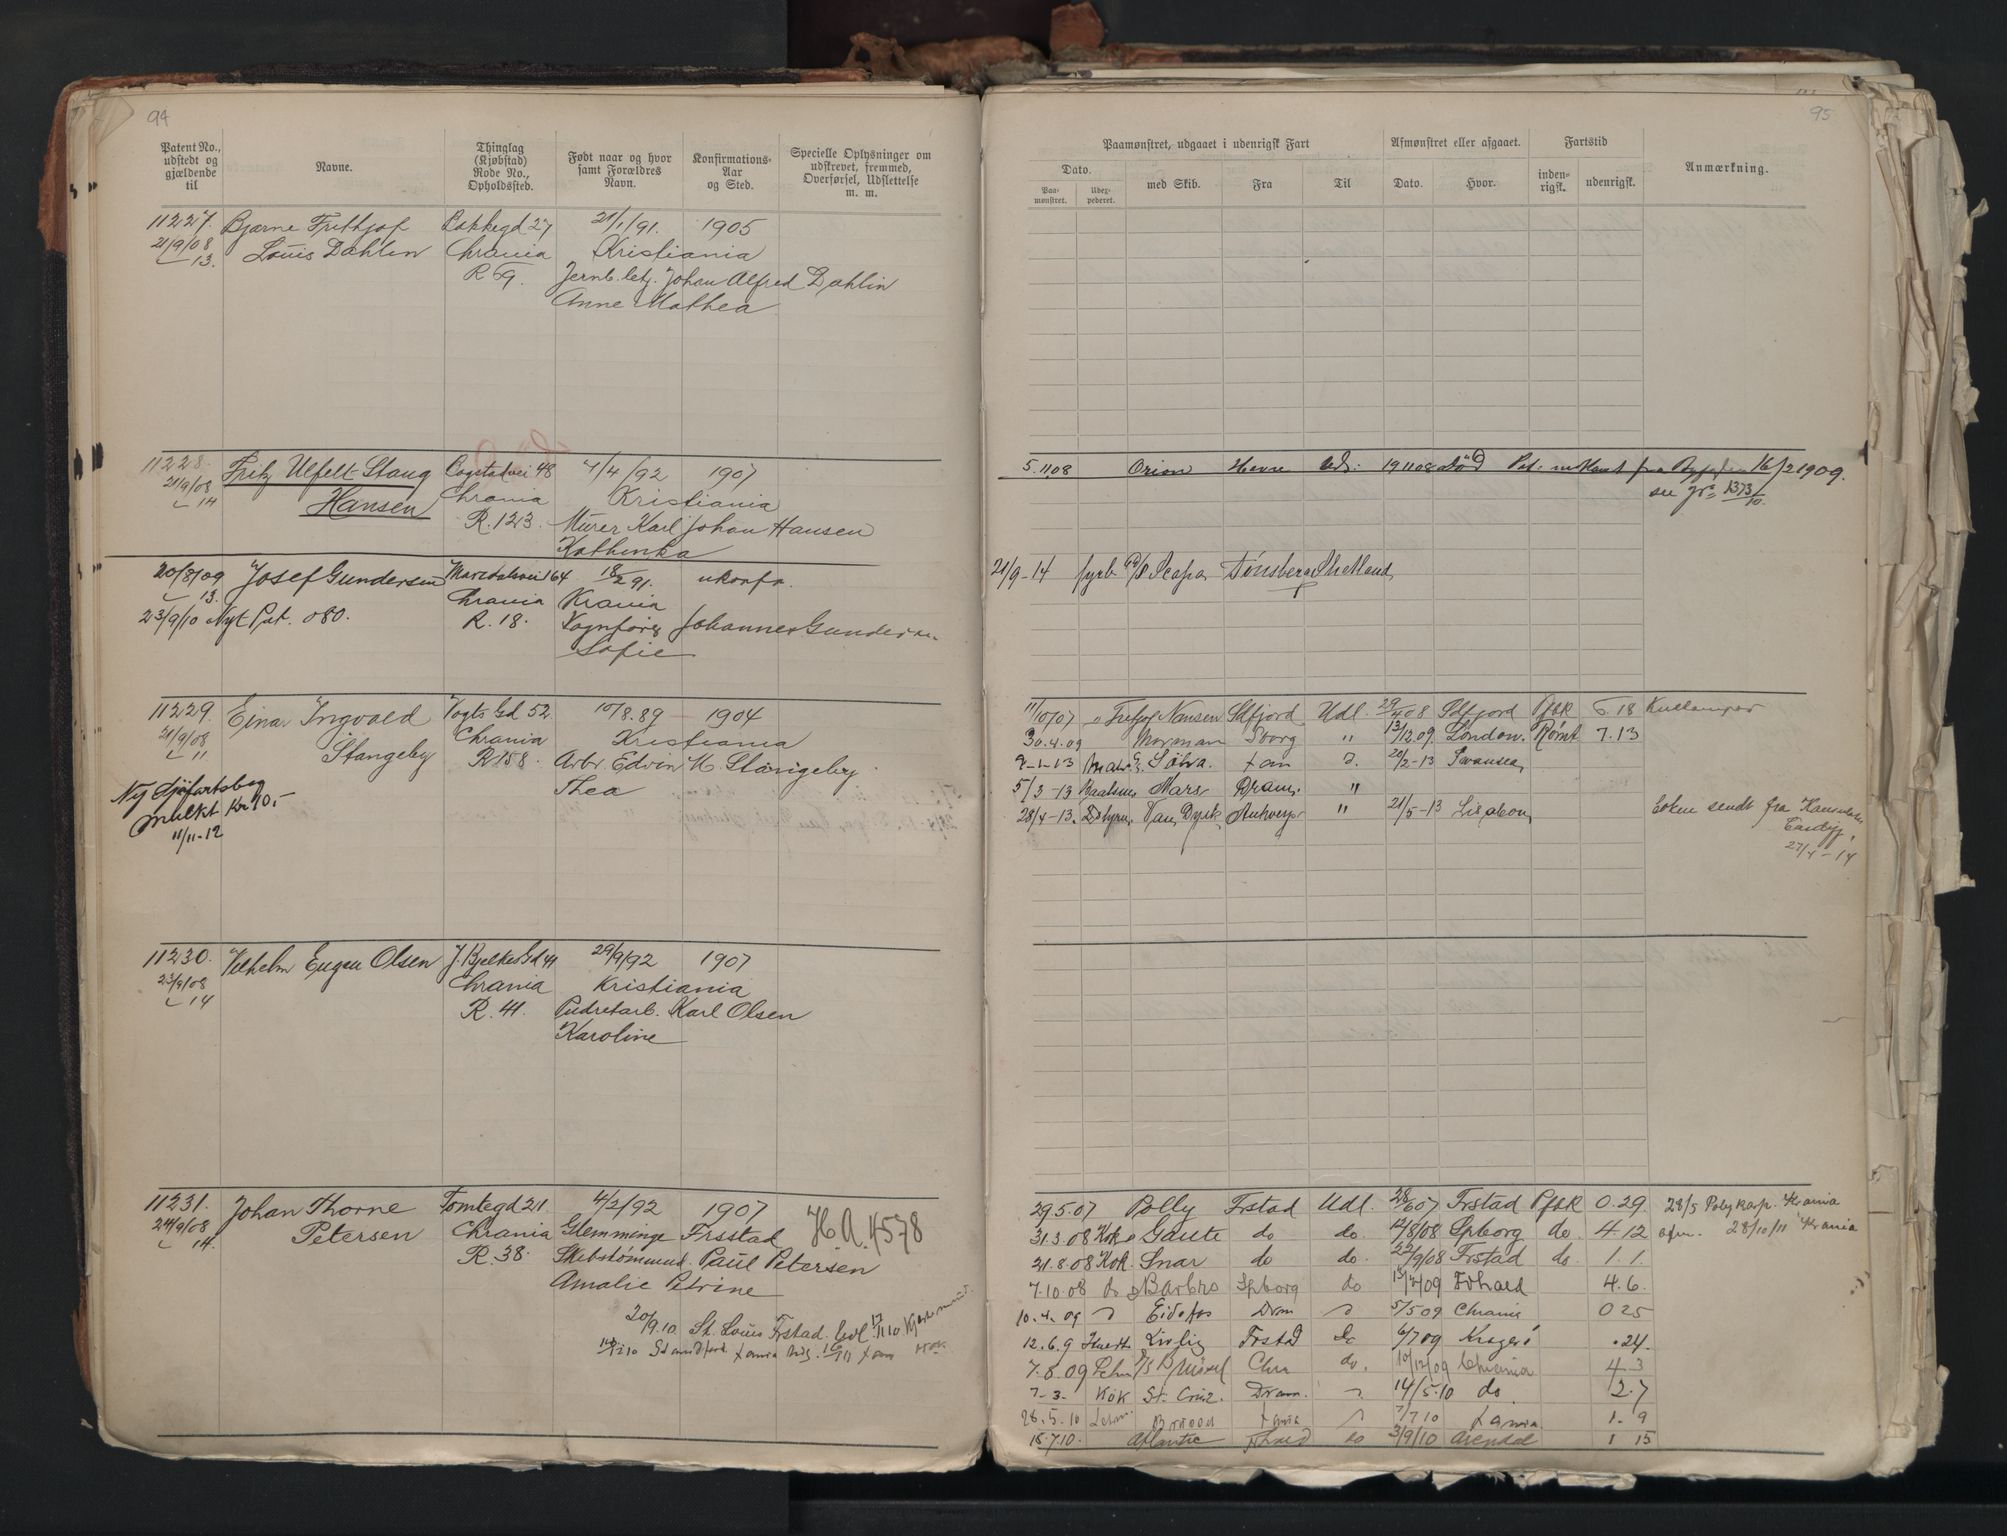 94
Patent No., udstedt og gjældende til
Navne.
Thinglag (Kjøbstad) Rode No., Opholdssted.
Født naar og hvor samt Forældres Navn.
Konfirmations-Aar og Sted.
Specielle Oplysninger om udskrevet, fremmed, Overførsel, Udslettelse m. m.
11227. Bjarne Frithjof Bakkegd 27 21/1/91. 1905
21/9/08 Louis Dahlin Chrania Kristiania
13. R 69. Jernb.betj. Johan Alfred Dahlin
Anne Mathea
11228. Fritz Ulfelt Stang 48 7/4/92 1907
21/9/08 Hansen Chrania Kristiania
14 R. 123. Murer Karl Johan Hansen
Kathinka
20/8/09 Josef Gundersen Maridalsvei 164 18/2 91. ukonf.
13. Chrania Krania
23/9/10 Nyt Pat. 080. R. 18. Vognfører Johannes Gundersen
Sofie
11229. Einar Ingvald Vogts Gd 52 10/8.89 1904
21/9/08 Stangeby Chrania Kristiania
11 R 158. Arb. Edvin M. Stangeby
Thea
Ny Sjøfartsbog
mulkt Kr 10.-
11/11-12
11230. Vilhelm Eugen Olsen J. Bjelkes Gd 41 29/9/92 1907
23/9/08 Chrania Kristiania
14 R. 41. Pudretarb. Karl Olsen
Karoline
11231. Johan Thorne Tomtegd 21 4/2/92 1907
24/9/08 Petersen Chrania Glemminge Frsstad H A. 4578
14. R. 38. Skibstømmrmd. Paul Petersen
Amalie Petrine
20/9.10 St. Louis Frstad. Udl.
95
Paamønstret, udgaaet i udenrigsk Fart
Afmønstret eller afgaaet.
Fartstid
Anmærkning.
Dato.
Paa-mønstret.
Udex-pederet.
med Skib.
Fra
Til
Dato.
Hvor.
inden-rigsk.
udenrigsk.
5.11.08 Orion Havre Udl. 19.11.08 død 16/2 1909.
se Jr 1373/10.
21/9-14 fyrb D/S Scapa Tønsberg Shetland
11/10/07 Fritjof Nansen Solfjord Udl. 29/4 08 Solfjord Pfsk 6.18
30.4.09 Norman Sborg " 13/12.09. London. Rømt 7.13
9-1-13 Matr. Sølva. 20/2-13 Swansea
5/3-13 Baatsm. Mars Dram. "
28/4-13. Van Dyck Antwerp " 21/5-13 Lissabon sendt fra
27/4-14
29.5.07 Polly Frstad Udl. 28/6 07 Frstad Pfsk 0.29. 28/5 Krania
31.3.08 Kok Gaute do do. 12/8/08 Spborg do. 4.12 28/10/11 Krania
21.8.08 Kok. Snar do do. 22/9/08 Frstad do. 1.1.
7.10.08 do Barbro Spborg do 13/2/09 Frhald 4.6.
10.4.09 Eidsfos Dram 5/5 09 Chrania 0 25
12.6.9 Livlig Frstad do 6/7 09 Kragerø .24.
7.8.09 Chra do. 10/12/09 Chrania 4 3
7-3- Kok St. Croix. Dram. 14/5.10 do 2.7
28.5.10 7/7 10 1. 9
15.7.10. Atlantic Frhald do 3/9/10 Arendal 1 15